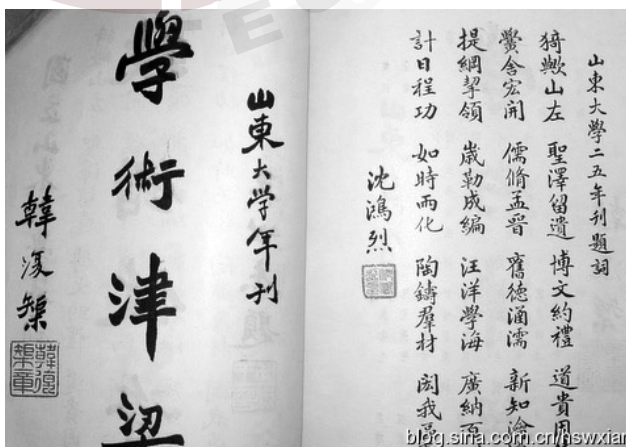 山東大學二五年刊題詞
猗歟山左 聖澤留遺 博文約禮 道貴用
黌舍宏開 儒脩孟晉 舊德涵濡 新知瀹
提綱挈領 歲勒成編 汪洋學海 廣納百
計日程功 如時雨化 陶鑄羣材 閎我區
沈鴻烈
山東大学年刊
學術津梁
韓復榘
韓復榘章
blog.sina.com.cn/hswxian